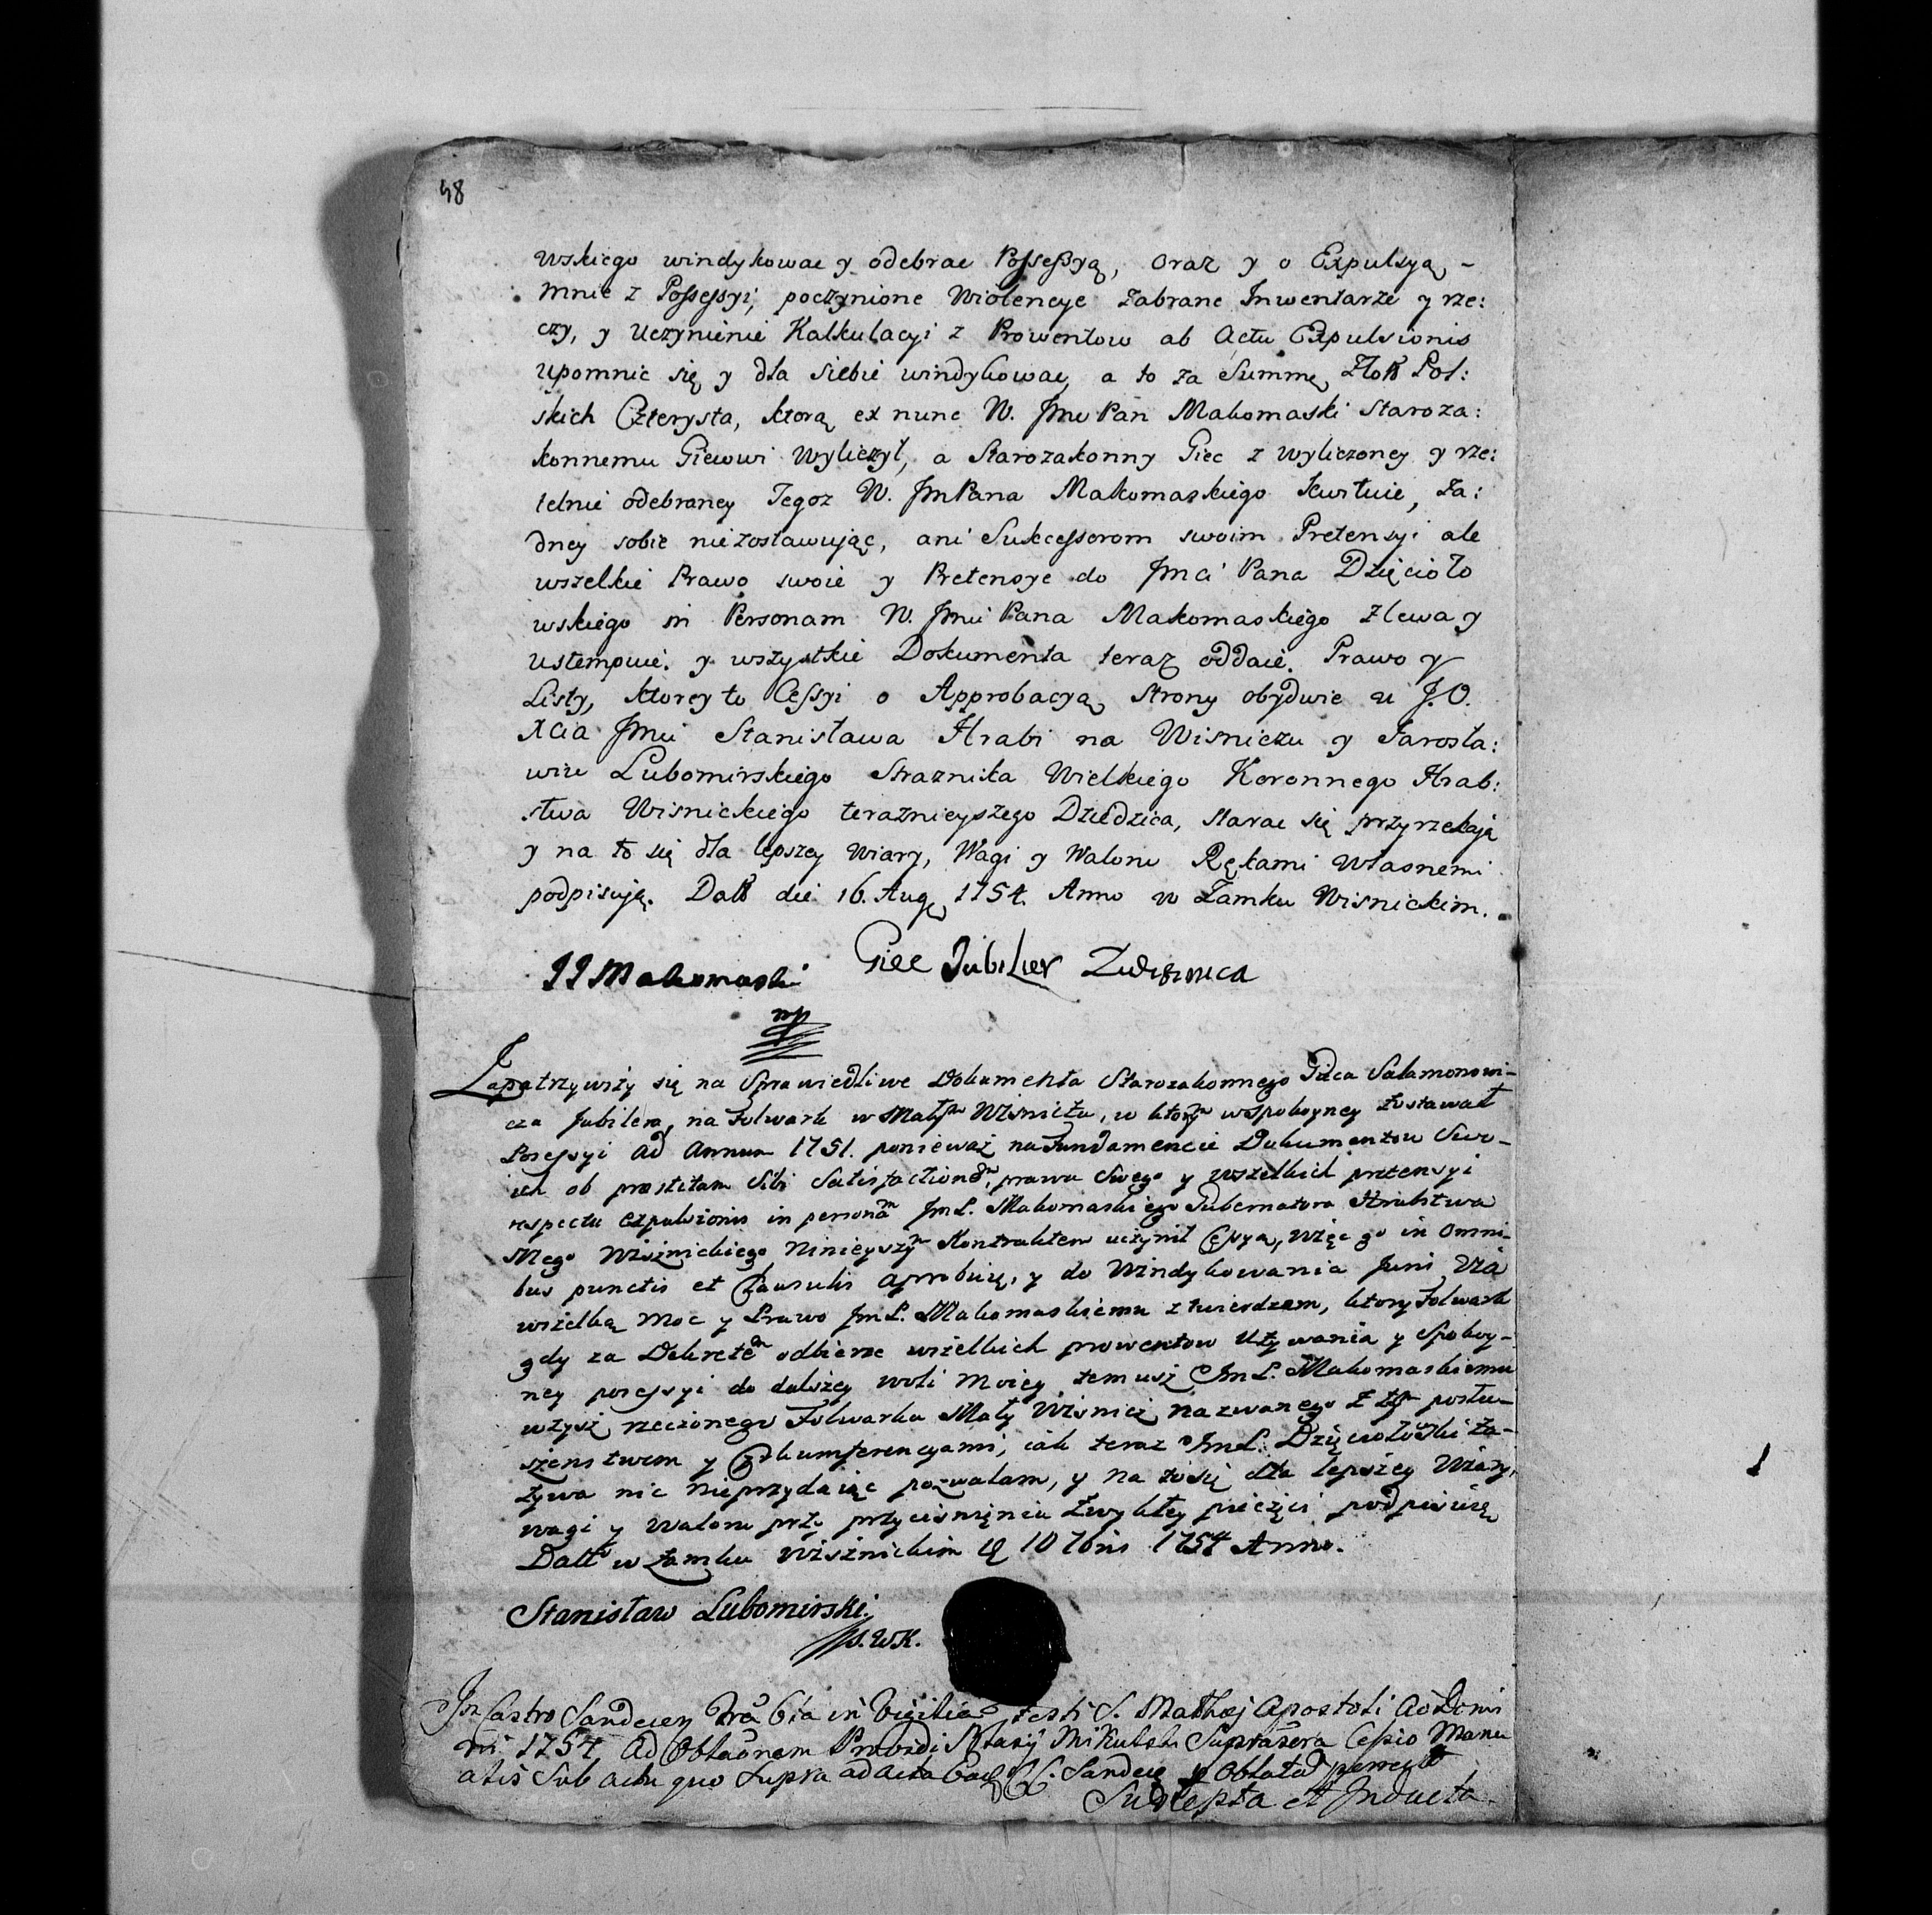 48
wskiego windykowac y odebrac Possessyą, oraz y o Expulsyą -
mnie z Possessyi, poczynione Wiolencye zabrane Inwentarze y rze:
czy, y Uczynienie Kalkulacyi z Prowentow ab Actu Expulsionis
upomnic się y dla siebie windykowac, a to za Summę Złott Pol:
skich Czterysta, ktorą ex nunc W. Jmc Pan Makomaski Staroza:
konnemu Giecowi Wyliczył, a Starozakonny Giec z wyliczoney y rze:
telnie odebraney Tegoz W. Jm Pana Makomaskiego kwituie, Za:
dney sobie niezostawując, ani Sukcessorom swoim Pretensyi ale
wszelkie Prawo swoie y Pretensye do Jmci Pana Dzięcioło
wskiego in Personam W. Jmci Pana Makomaskiego zlewa y
ustempuie. y wszystkie Dokumenta teraz oddaie. Prawo y
Listy, ktorey to Cessyi o Approbacyą Strony obydwie u J.O.
Xcia Jmci Stanisława Hrabi na Wisniczu y Jarosła:
wiu Lubomirskiego Straznika Wielkiego Koronnego Hrab:
stwa Wisnickiego teraznieyszego Dziedzica, starac się przyrzekają
y na to się dla lepszey Wiary, Wagi y Waloru Rękami Własnemi
podpisują. Datt die 16. Aug 1754. Anno w Zamku Wisnickim.
JJMakomaski Giec Jubiler
mp
Zapatrzywszy się na Sprawiedliwe Dokumenta Starozakonnego Gieca Salamonowi-
cza Jubilera, na Folwark w Małym Wisniczu, w ktorym wspokoyney zostawał
Possessyi ad Annum 1751. ponieważ na Fundamencie Dokumentow Swo-
ich ob præstitam Sibi Satisfactionem, prawa Swego y wszelkich pretensyi
respectu Expulsionis in personam JmP. Makomaskiego Gubernatora Hrabstwa
Mego Wisznickiego Ninieyszym Kontraktem uczynił Cessyą, Więc go in Omni-
bus punctis et Clausulis approbuię, y do Windykowania Juris Via
wszelką Moc y Prawo JmP. Makomaskiemu ztwierdzam, ktory Folwark
gdy za Dekretem odbierze wszelkich prowentow Używania y Spokoy-
ney possessyi do dalszey woli Moiey, temusz JmP. Makomaskiemu
wzysz rzeczonego Folwarku Mały Wisnicz nazwanego z tym posłu-
szenstwem y Cyrkumferencyami, iak teraz JmP. Dzięciołowski za-
żywa nic nieprzydaiąc pozwalam, y na to się dla lepszey Wiary,
wagi y Waloru przy przycisnieniu zwykłey pieczęci podpisuię
Datt w Zamku Wisznickim D 10 7bris 1754 Anno.
Stanisław Lubomirski
S.W.K.
In Castro Sandecen Fria 6ta in Vigilia Festi S. Mathæi Apostoli Ao Domi
ni 1754, Ad Oblaonem Providi Mikulski Suprascra Cessio Manu
alis Sub actu quo Supra ad acta C. Sandec p Oblatam porrecta
Suscepta et Inducta.